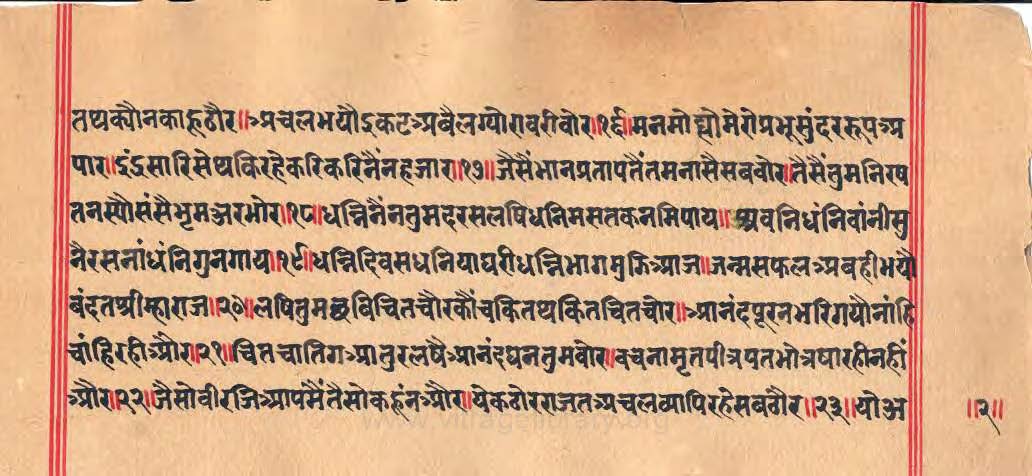 तथक्यौनकाहूठौर॥अचलभयौउकटअबैलग्योरावरीवोर॥१६॥मनमोह्यौमेरोप्रभूसुंदररूपअ
पार॥इंद्रसारिसेथकिरहेकरिकरिनैंनहजार॥१७॥जैसैंभानप्रतापतैंतमनासैसबवोर॥तैसैंतुमनिरष
तनस्यौसंसैभृमअरभोर॥१८॥धन्निनैंनतुमदरसलषिधनिमसतकनमिपाय॥श्रवनिधंनिवांनीसु
नैरसनांधंनिगुनगाय॥१९॥धन्निदिवसधनियाघरीधन्निभागमुझिआज॥जन्मसफलअबहीभयौ
बंदतश्रीम्हाराज॥२०॥लषितुमछविचितचौरकौंचकितथकितचितचोर॥आनंदपूरनभरिगयौनांहि
चांहिरहीऔर॥२१॥चितचातिगआतुरलषैआनंदघनतुमवोर॥वचनामृतपीत्रपतभोत्रषारहीनहीं
और॥२२॥जैसोवीरजिआपमैंतैसोकहूंनऔर॥येकठोरराजतअचलव्यापिरहेसबठौर॥२३॥यौअ
॥२॥
www.vitragelibrary.org